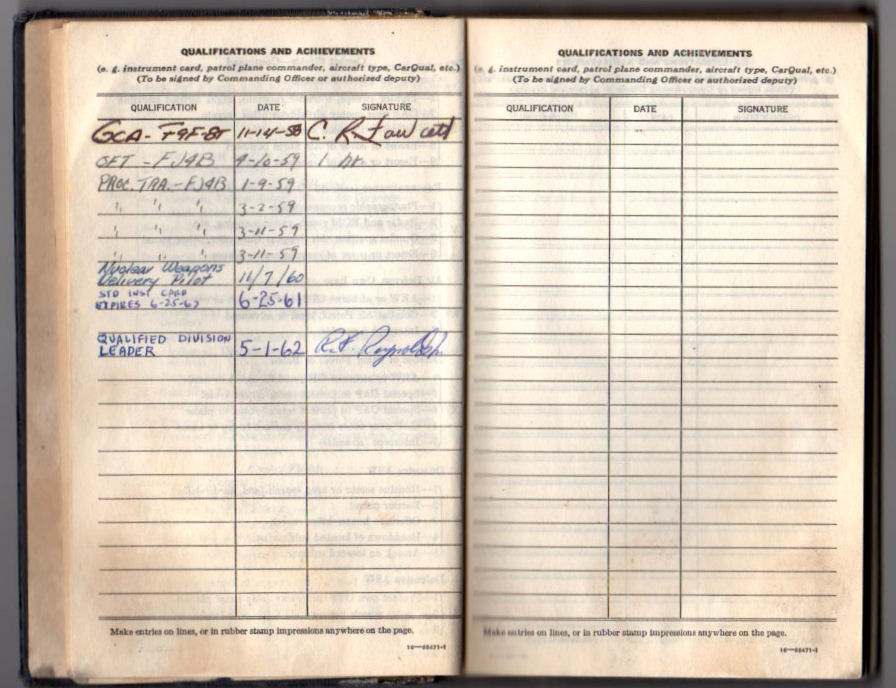 QUALIFICATIONS AND ACHIEVEMENTS
(e. g. instrument card, patrol plane commander, aircraft type, CarQual, etc.)
(To be signed by Commanding Officer or authorized deputy)
QUALIFICATION DATE SIGNATURE
GCA - F9F-8T 11-14-58 C. R. Fawcett
OFT - FJ4B 9-10-59 1 hr.
PROC. TRA. - FJ4B 1-9-59
" " " 3-2-59
" " " 3-11-59
" " " 3-11-59
Nuclear Weapons
Delivery Pilot 11/7/60
STD INST CARD
EXPIRES 6-25-62 6-25-61
QUALIFIED DIVISION
LEADER 5-1-62 R. F.
Make entries on lines, or in rubber stamp impressions anywhere on the page.
16—68471-1
QUALIFICATIONS AND ACHIEVEMENTS
(e. g. instrument card, patrol plane commander, aircraft type, CarQual, etc.)
(To be signed by Commanding Officer or authorized deputy)
QUALIFICATION DATE SIGNATURE
Make entries on lines, or in rubber stamp impressions anywhere on the page.
16—68471-1